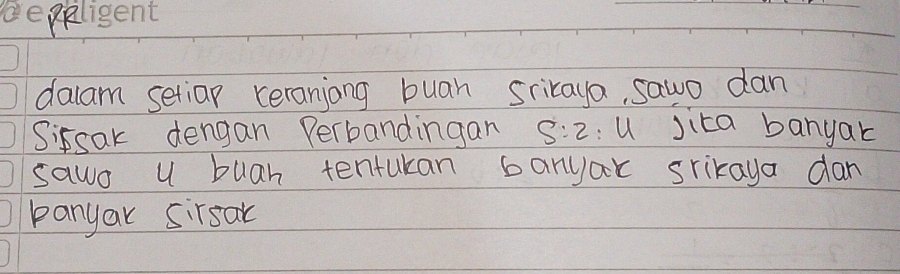 PR
dalam setiap keranjang buah Srikaya, sawo dan
Sirsak dengan Perbandingan 5:2:4 Jika banyak
sawo 4 buah tentukan banyak srikaya dan
banyak sirsak